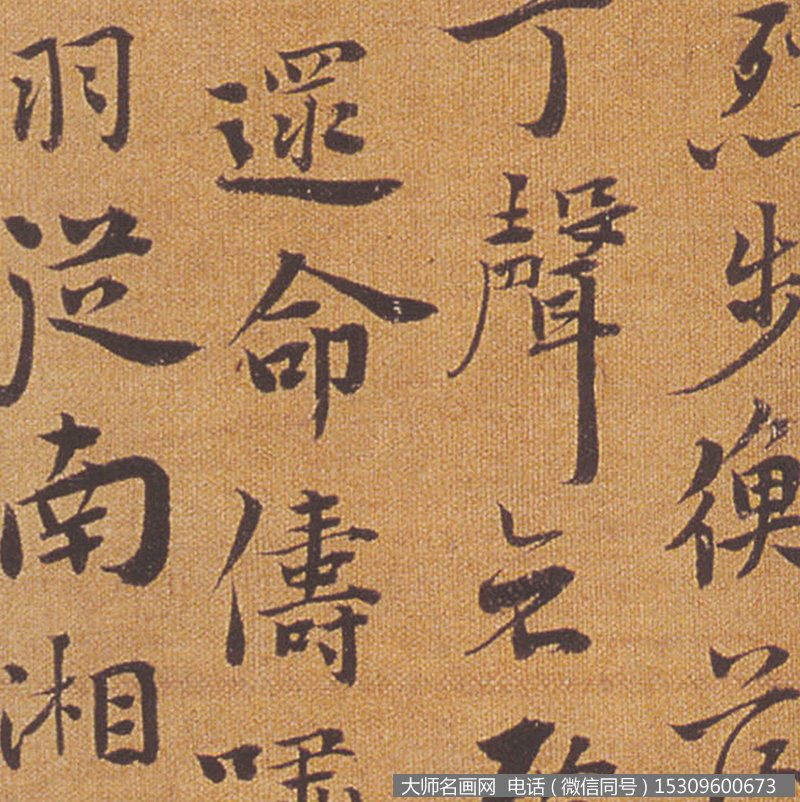 烈步衡
聲
遝命儔嘯
羽從南湘
大师名画网 电话（微信同号）15309600673